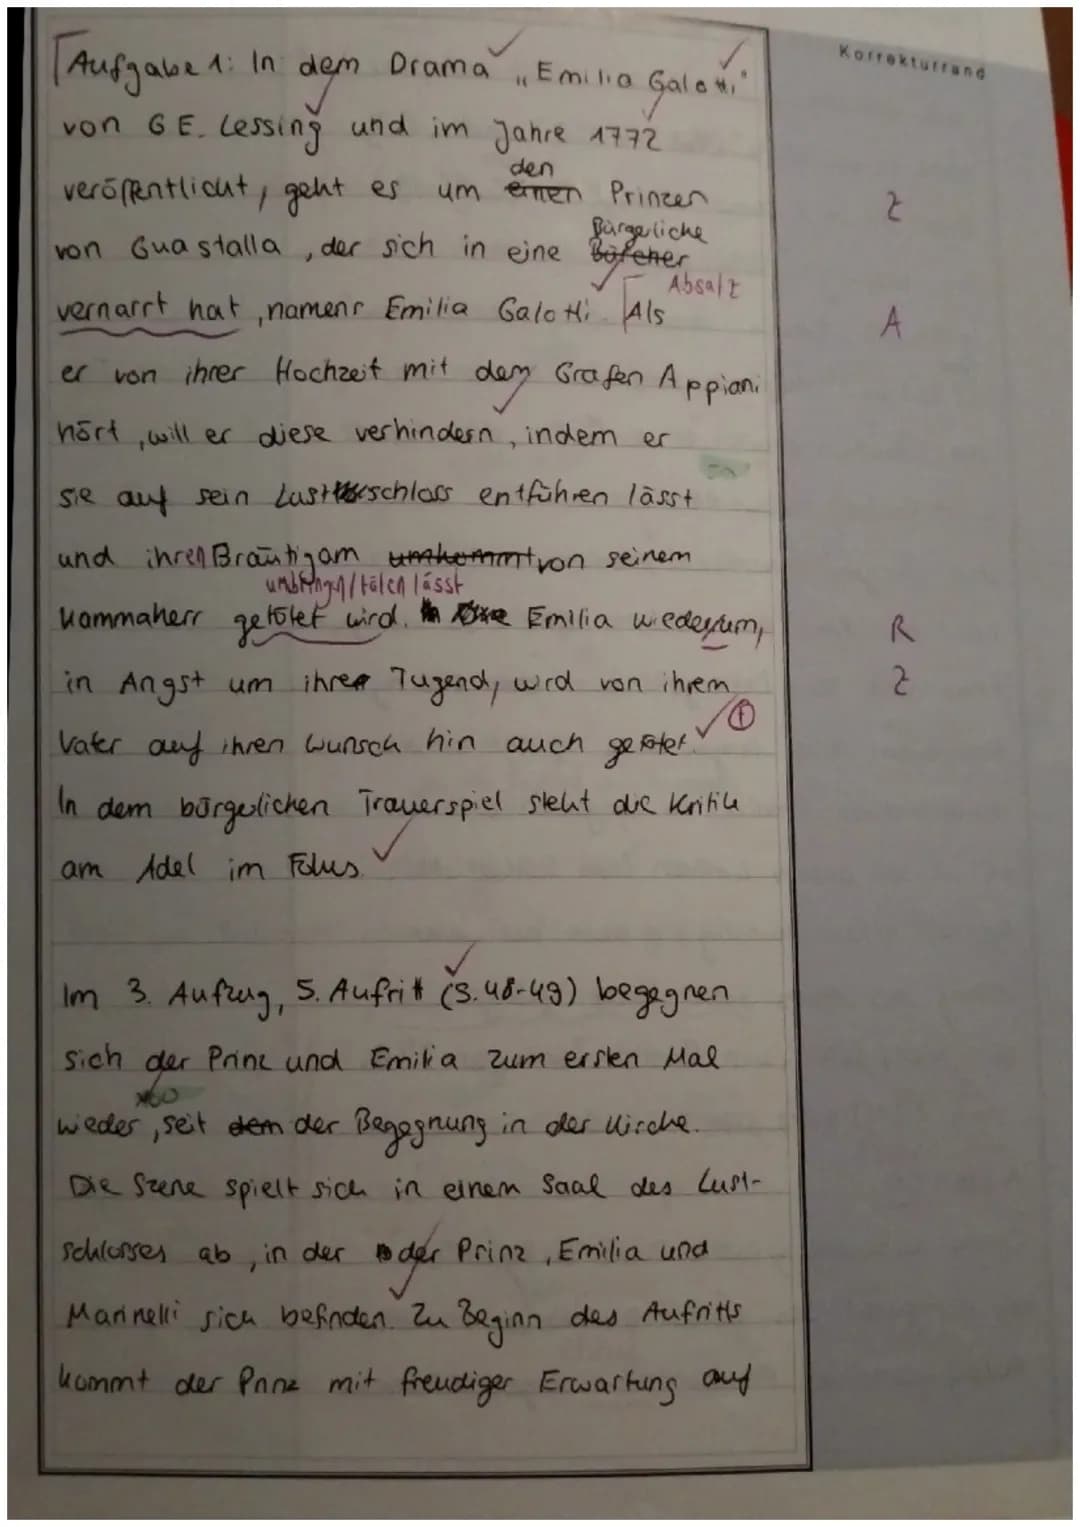 Aufgabe 1: In dem Drama „Emilia Galotti"
Korrekturrand
von G E. Lessing und im Jahre 1772
den
veröffentlicht, geht es um einen Prinzen
Z
Bürgerliche
von Guastalla, der sich in eine
Absatz
vernarrt hat, namens Emilia Galotti. Als
A
er von ihrer Hochzeit mit dem Grafen Appiani
hört, will er diese verhindern, indem er
sie auf sein Lustschloss entführen lässt
und ihren Bräutigam umkommt von seinem
umbringen/töten lässt
Kammaherr getötet wird. Emilia wiederum,
R
in Angst um ihre Tugend, wird von ihrem
Z
Vater auf ihren Wunsch hin auch getötet.
In dem bürgerlichen Trauerspiel steht die Kritik
am Adel im Fokus.
Im 3. Aufzug, 5. Aufritt (S. 48-49) begegnen
sich der Prinz und Emilia zum ersten Mal
wieder, seit dem der Begegnung in der Kirche.
Die Szene spielt sich in einem Saal des Lust-
schlosses ab, in der der Prinz, Emilia und
Marinelli sich befinden. Zu Beginn des Aufritts
kommt der Prinz mit freudiger Erwartung auf